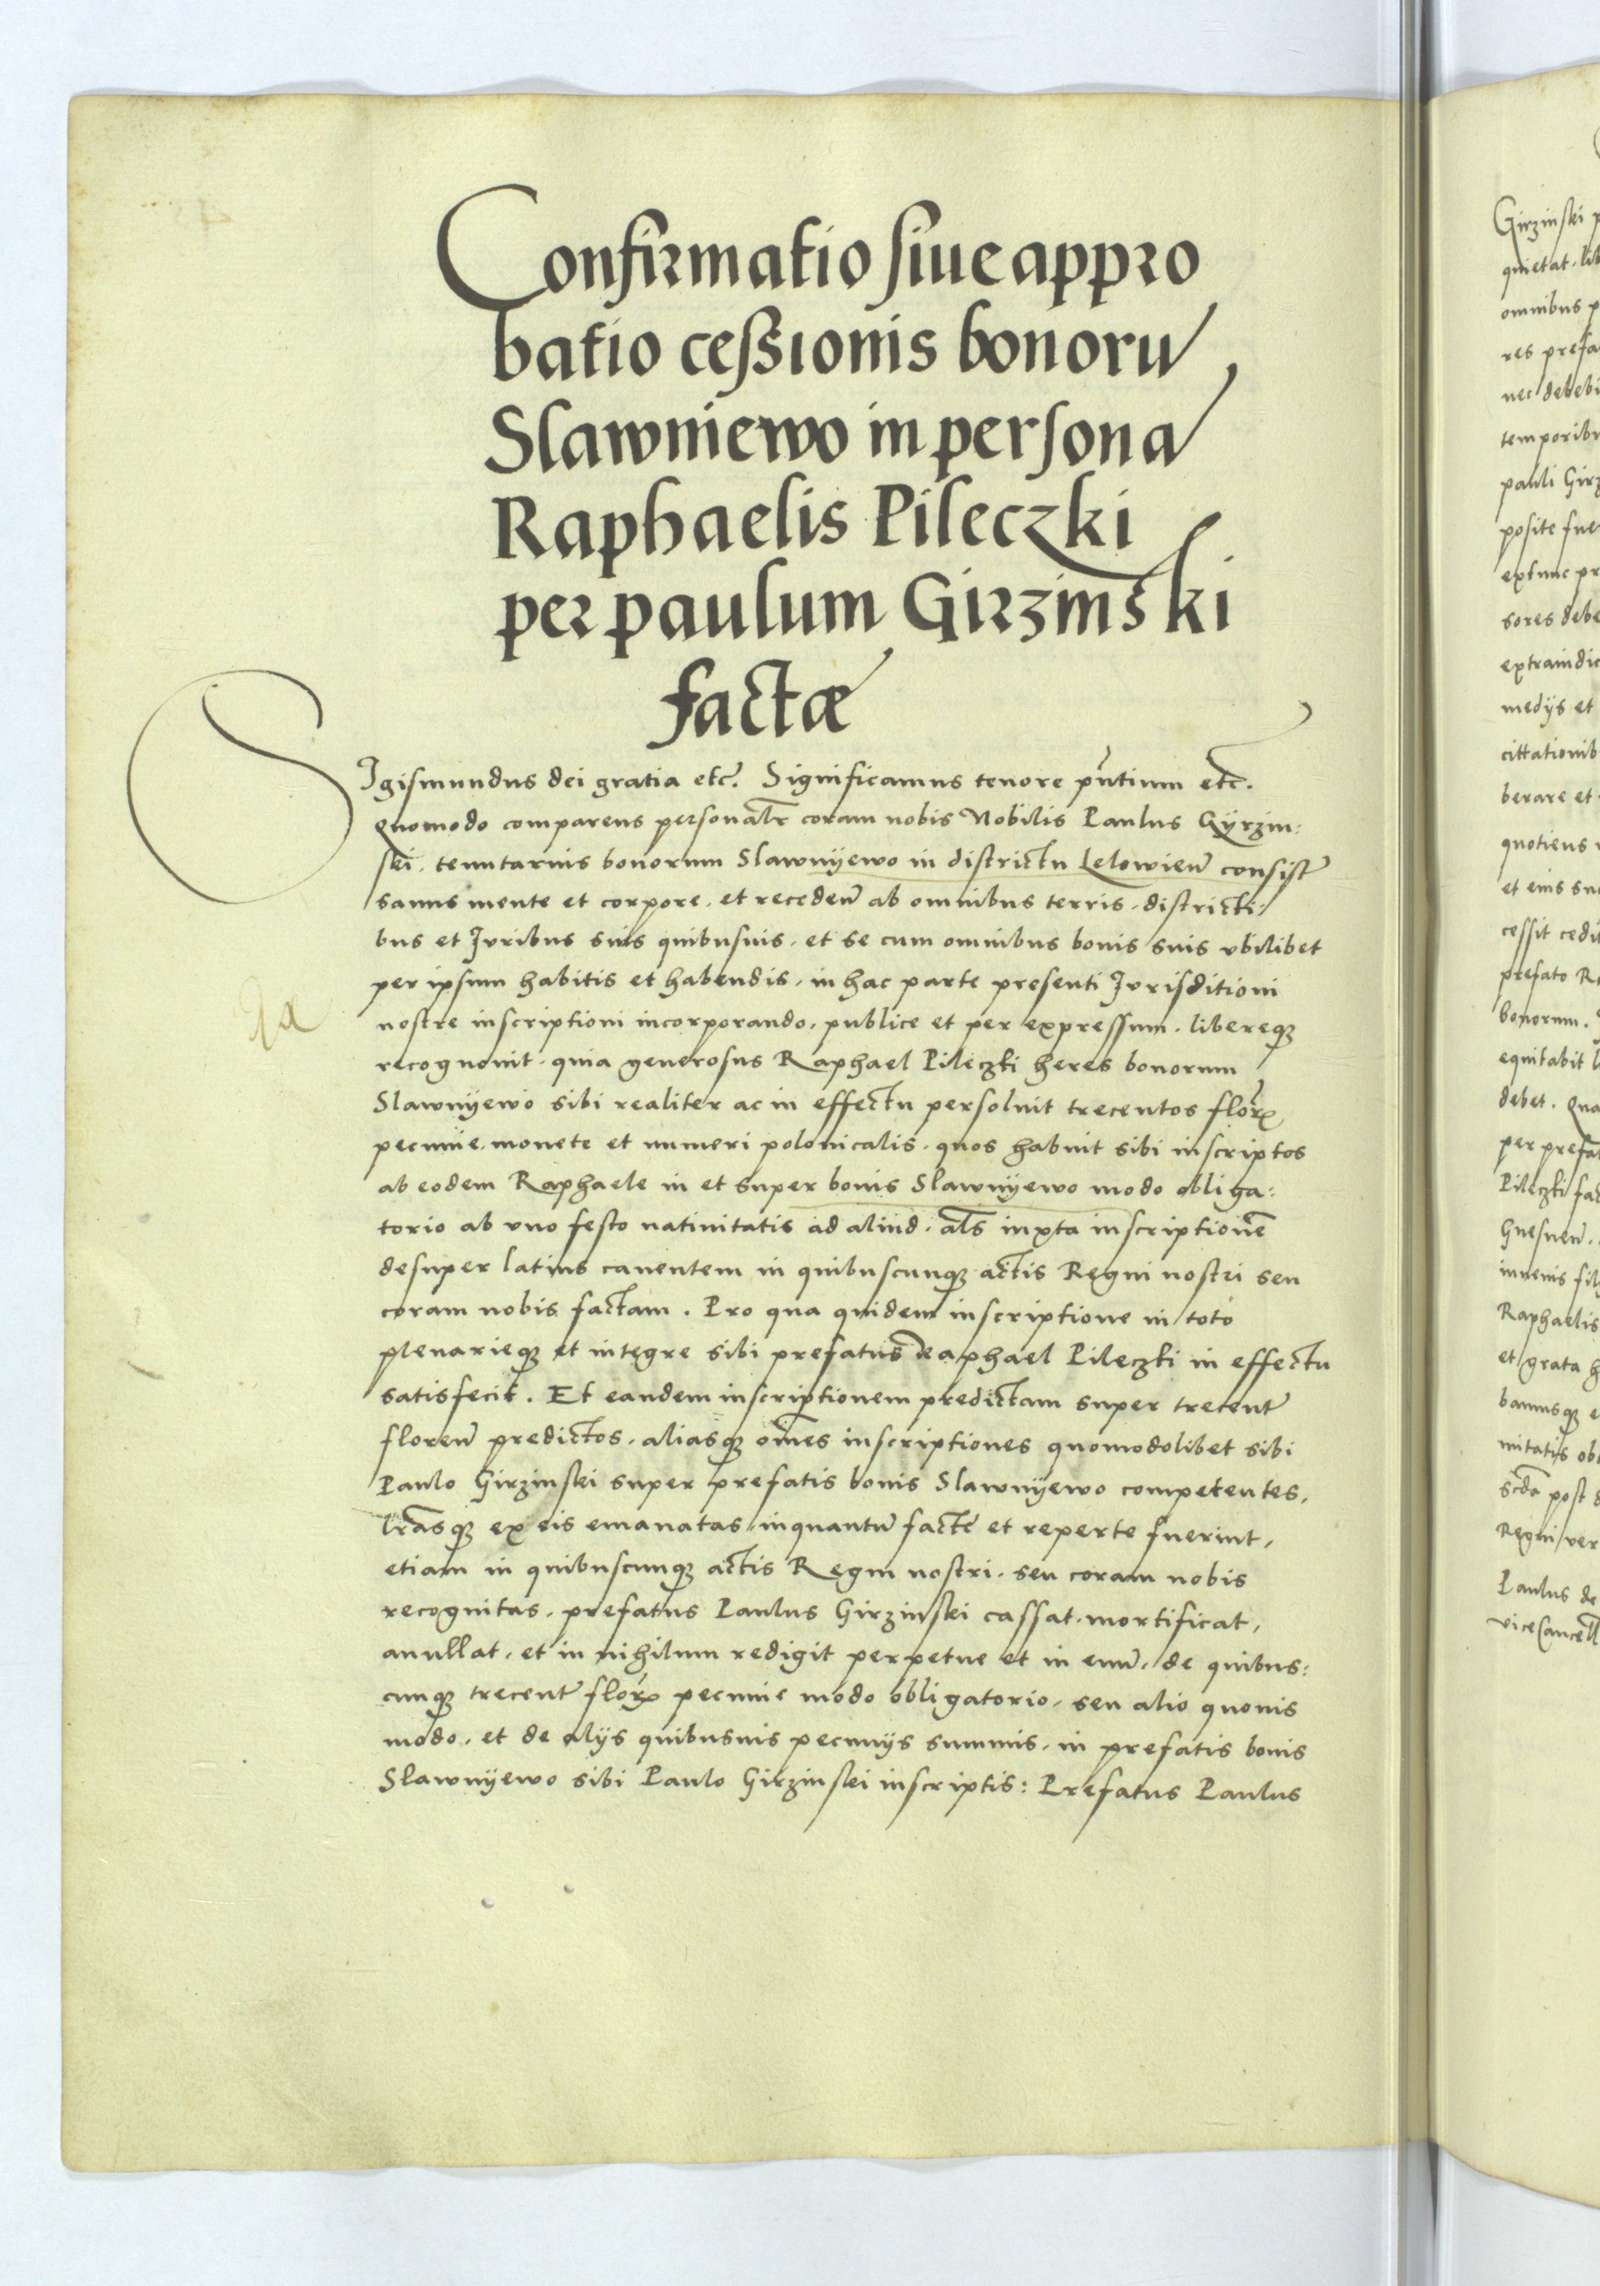 Confirmatio siue appro
batio ceßionis bonoru
Slawniewo in persona
Raphaelis Pileczki
per paulum Girzinski
factæ
SIgismundus dei gratia etc. Significamus tenore pñtium etc.
Quomodo comparens personalr coram nobis Nobilis Paulus Gÿrzin:
ski. tenutarius bonorum Slawnÿewo in districtu Lelowien consist
sanus mente et corpore. et receden ab omnibus terris. districti:
bus et Iuribus suis quibusuis. et se cum omnibus bonis suis vbilibet
per ipsum habitis et habendis. in hac parte presenti Iurisditioni
nostre inscriptioni incorporando. publice et per expressum. libereq3
recognouit. quia generosus Raphael Pileczki heres bonorum
Slawnÿewo sibi realiter ac in effectu persoluit trecentos flor
pecunie. monete et numeri polonicalis. quos habuit sibi inscriptos
ab eodem Raphaele in et super bonis Slawnÿewo modo obliga:
torio ab vno festo natiuitatis ad aliud. als iuxta inscriptione
desuper latius cauentem in quibuscunq3 actis Regni nostri seu
coram nobis factam. Pro qua quidem inscriptione in toto
plenarieq3 et integre sibi prefatus Raphael Pileczki in effectu
satisfecit. Et eandem inscriptionem predictam super trecent
floren predictos. aliasq3 oms inscriptiones quomodolibet sibi
Paulo Girzinski super prefatis bonis Slawnÿewo competentes,
lrasq3 ex eis emanatas. inquantu facte et reperte fuerint,
etiam in quibuscunq3 actis Regni nostri. seu coram nobis
recognitas. prefatus Paulus Girzinski cassat. mortificat,
anullat. et in nihilum redigit perpetue et in euu. de quibus:
cunq3 trecent flor pecunie modo obligatorio. seu alio quouis
modo. et de alÿs quibusuis pecunÿs summis. in prefatis bonis
Slawnÿewo sibi Paulo Girzinski inscriptis: Prefatus Paulus